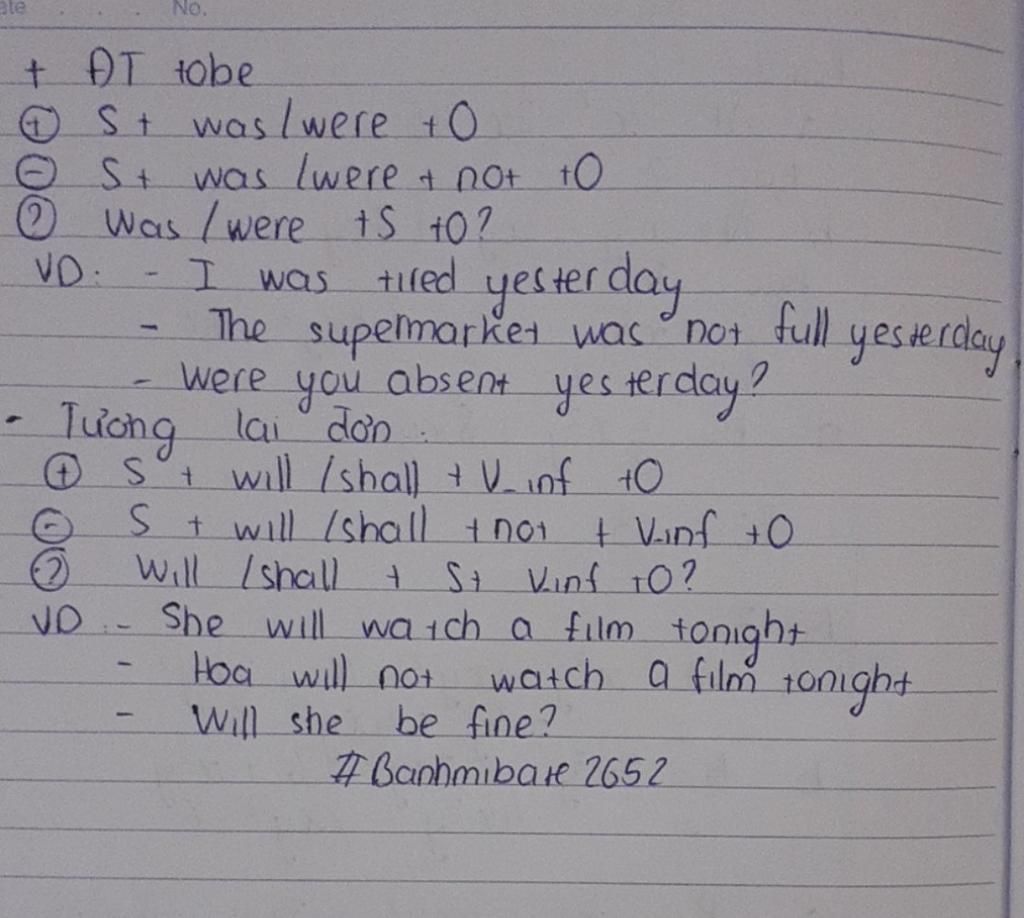 ate . . . No.
+ ĐT tobe
(+) S + was / were + O
(-) S + was / were + not + O
(?) Was / were + S + O?
VD: - I was tired yesterday
- The supermarket was not full yesterday
- Were you absent yesterday?
- Tương lai đơn.
(+) S + will / shall + V_inf + O
(-) S + will / shall + not + V_inf + O
(?) Will / shall + S + V_inf + O?
VD: - She will watch a film tonight
- Hoa will not watch a film tonight
- Will she be fine?
#Banhmibate2652